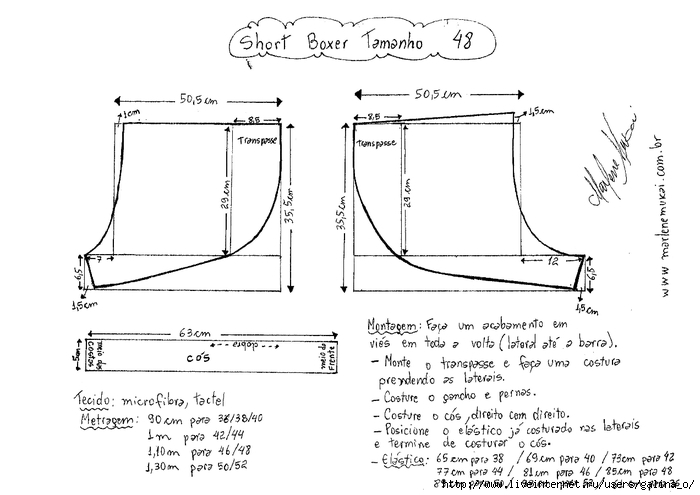 Short Boxer Tamanho 48
50,5 cm
1cm
8,5
Transpasse
29 cm
35,5 cm
7
6,5
1,5cm
50,5 cm
1,5cm
8,5
Transpasse
29 cm
35,5 cm
12
6,5
1,5cm
www.marlenemukai.com.br
63 cm
5cm
meio das
costas
cós
dobra
meio da
Frente
Tecido: microfibra, tactel
Metragem: 90 cm para 36/38/40
1m para 42/44
1,10m para 46/48
1,30m para 50/52
Montagem: Faça um acabamento em
viés em toda a volta (lateral até a barra).
- Monte o transpasse e faça uma costura
prendendo as laterais.
- Costure o gancho e pernas.
- Costure o cós, direito com direito.
- Posicione o elástico já costurado nas laterais
e termine de costurar o cós.
- Elástico: 65 cm para 38 / 69 cm para 40 / 73cm para 42
77 cm para 44 / 81 cm para 46 / 85cm para 48
http://www.liveinternet.ru/users/galina_o/